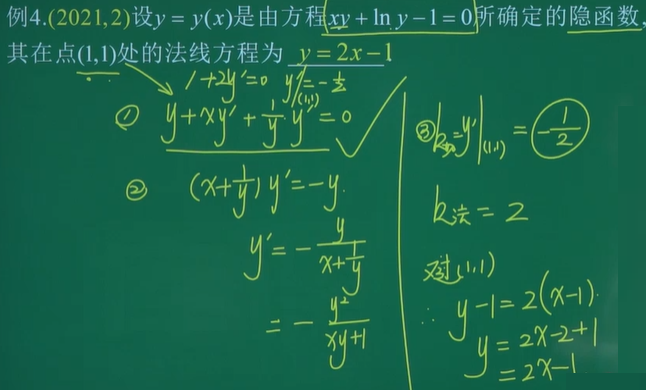 例4.(2021,2)设y = y(x)是由方程xy + ln y − 1 = 0所确定的隐函数,
其在点(1,1)处的法线方程为 y = 2x − 1
1+2y'=0 y'|(1,1)=-1/2
① y+xy'+1/y y'=0
② (x+1/y)y'=-y.
y'=-y/(x+1/y)
=-y²/(xy+1)
③ k切=y'|(1,1)=-1/2
k法=2
又过(1,1)
∴ y-1=2(x-1).
y=2x-2+1
=2x-1